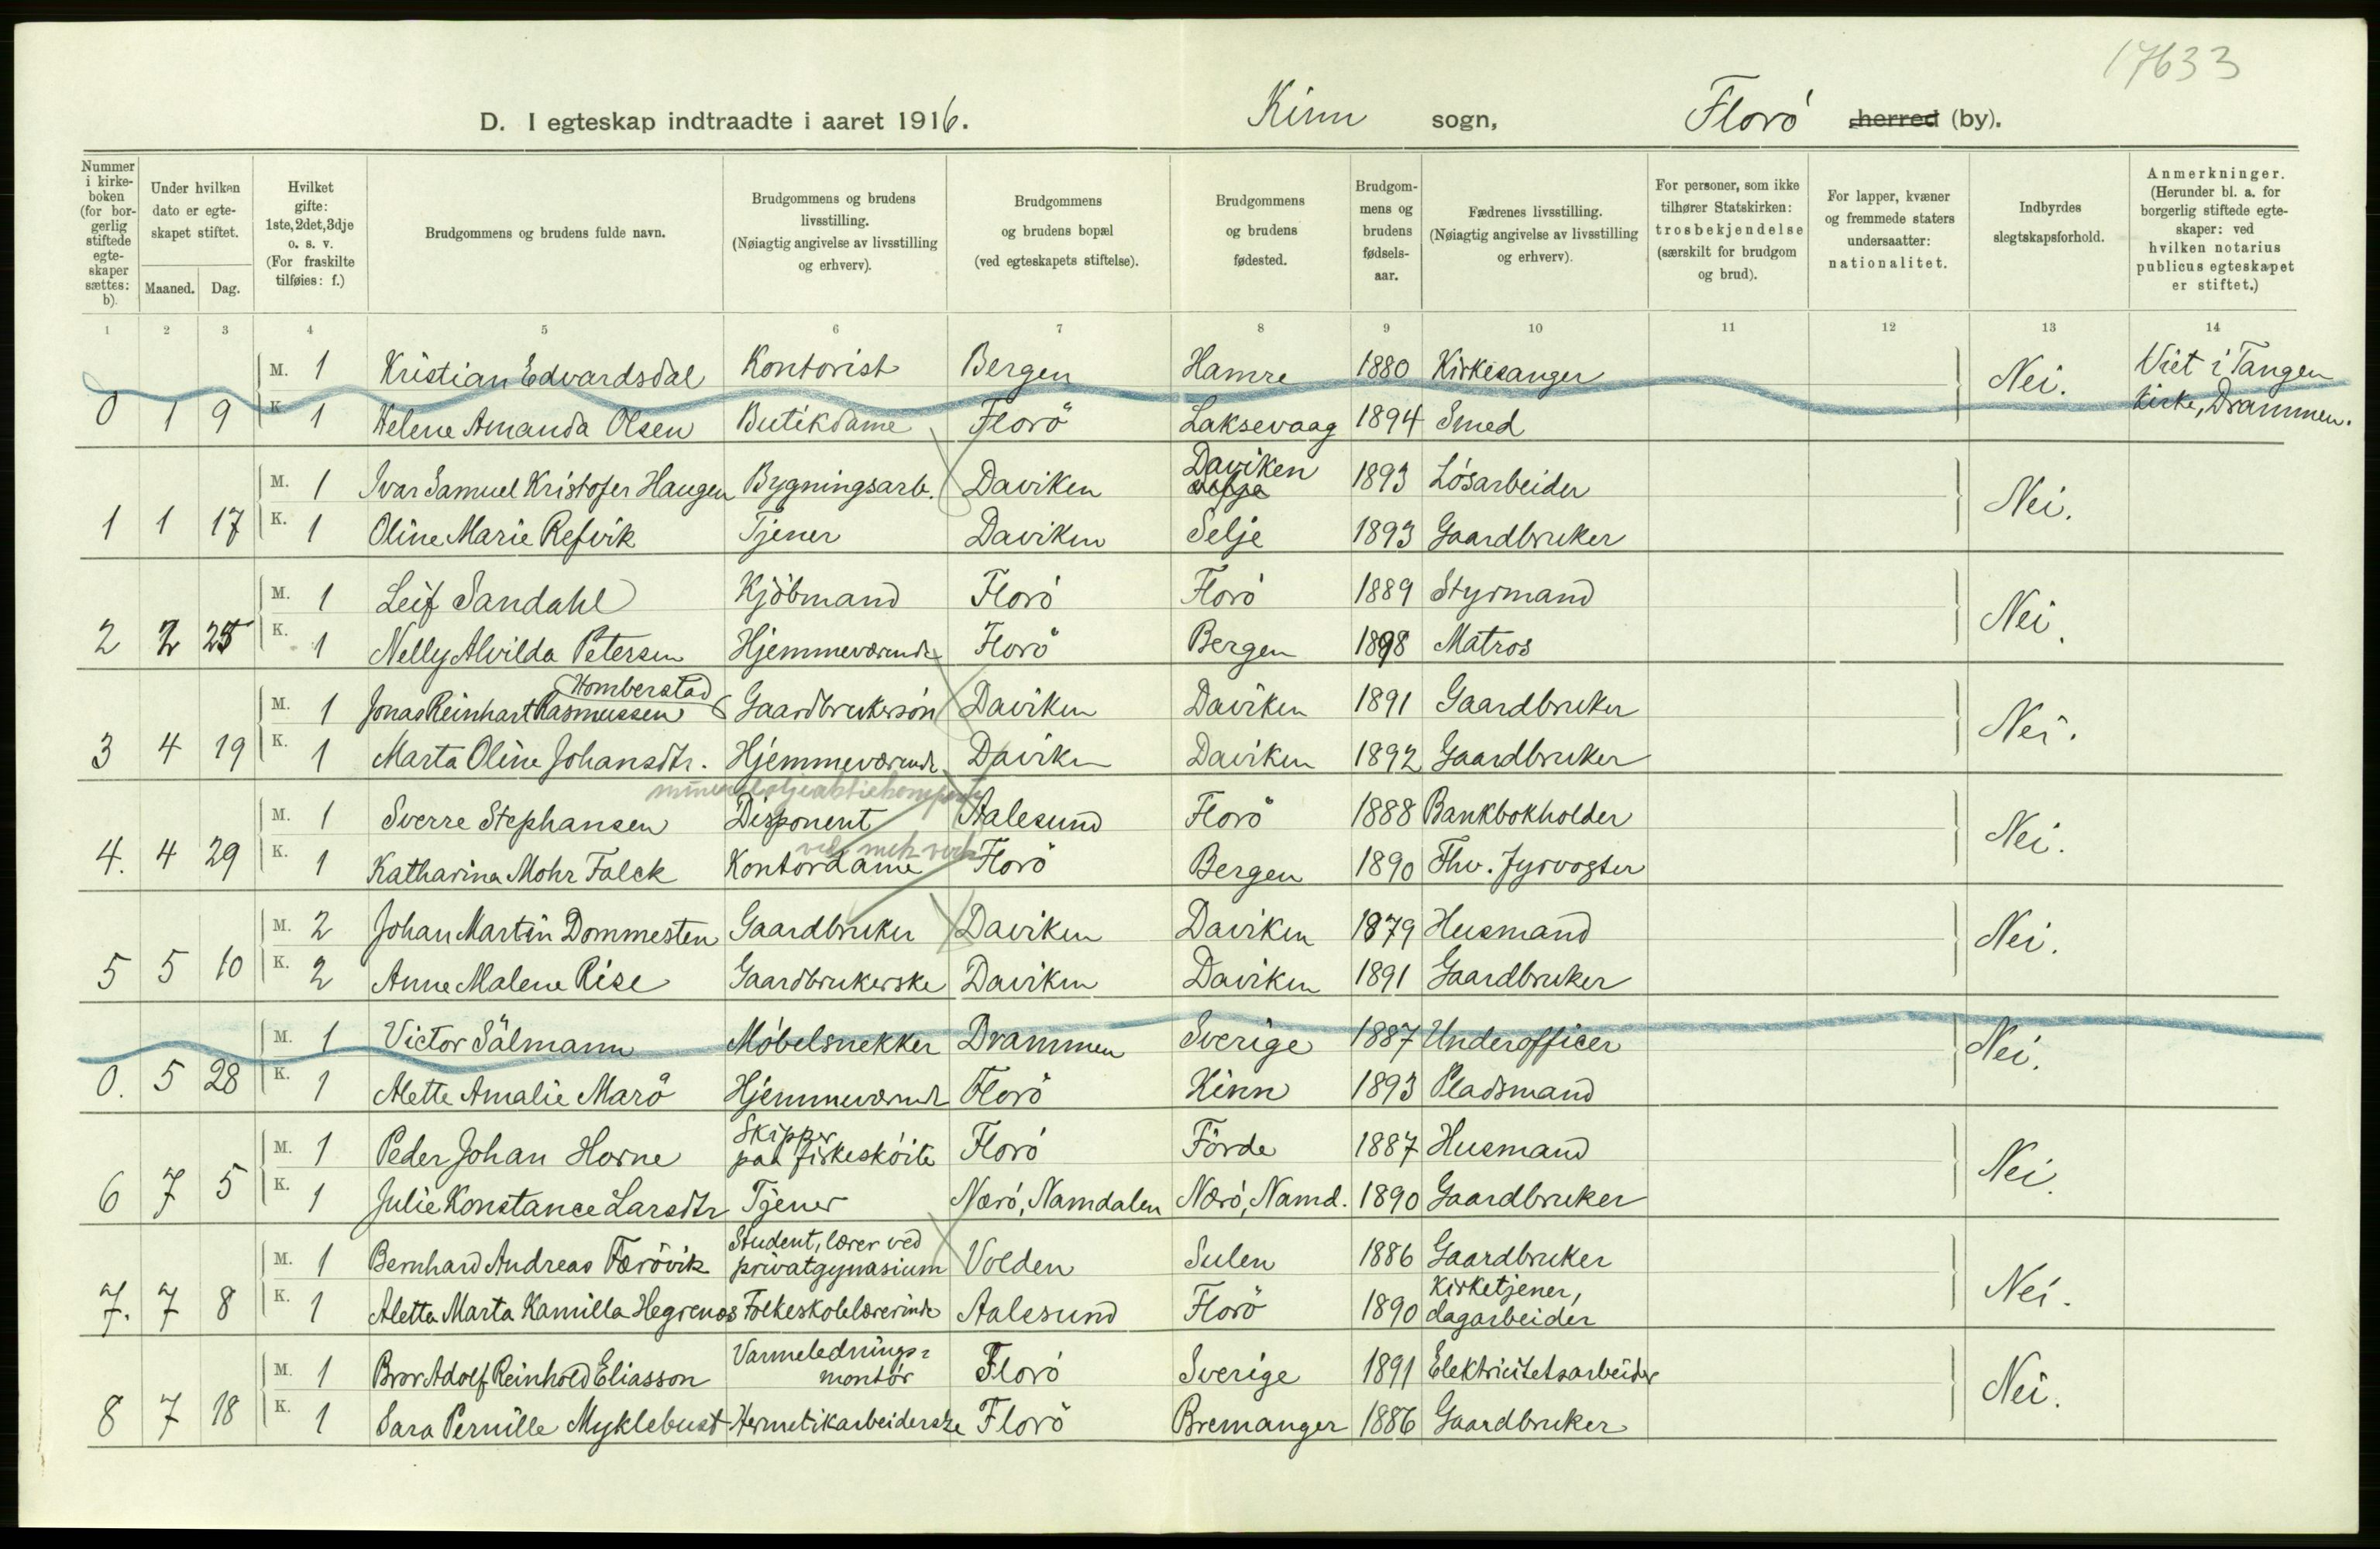 17633
D. I egteskap indtraadte i aaret 1916. Kinn sogn, Florö herred (by).
Nummer i kirkeboken (for borgerlig stiftede egteskaper sættes: b).
Under hvilken dato er egteskapet stiftet.
Maaned. Dag.
Hvilket gifte: 1ste, 2det, 3dje o. s. v. (For fraskilte tilføies: f.)
Brudgommens og brudens fulde navn.
Brudgommens og brudens livsstilling. (Nøiagtig angivelse av livsstilling og erhverv).
Brudgommens og brudens bopæl (ved egteskapets stiftelse).
Brudgommens og brudens fødested.
Brudgommens og brudens fødselsaar.
Fædrenes livsstilling. (Nøiagtig angivelse av livsstilling og erhverv).
For personer, som ikke tilhører Statskirken: trosbekjendelse (særskilt for brudgom og brud).
For lapper, kvæner og fremmede staters undersaatter: nationalitet.
Indbyrdes slegtskapsforhold.
Anmerkninger. (Herunder bl. a. for borgerlig stiftede egteskaper: ved hvilken notarius publicus egteskapet er stiftet.)
1 2 3 4 5 6 7 8 9 10 11 12 13 14
M. 1 Kristian Edvardsdal Kontorist Bergen Hamre 1880 Kirkesanger Nei. Viet i Tangen
0 1 9 K. 1 Helene Amanda Olsen Butikdame Florö Laksevaag 1894 Smed kirke, Drammen.
M. 1 Ivar Samuel Kristofer Haugen Bygningsarb. Daviken Daviken 1893 Lösarbeider Nei.
1 1 17 K. 1 Oline Marie Refvik Tjener Daviken Selje 1893 Gaardbruker
M. 1 Leif Sandahl Kjöbmand Florö Florö 1889 Styrmand Nei.
2 2 25 K. 1 Nelly Alvilda Petersen Hjemmeværende Florö Bergen 1898 Matros
Homberstad
M. 1 Jonas Reinhart Rasmussen Gaardbrukersön Daviken Daviken 1891 Gaardbruker Nei.
3 4 19 K. 1 Marta Oline Johansdtr. Hjemmeværende Daviken Daviken 1892 Gaardbruker
M. 1 Sverre Stephansen Disponent Aalesund Florö 1888 Bankbokholder Nei.
ved mek. verk.
4. 4 29 K. 1 Katharina Mohr Falck Kontordame Florö Bergen 1890 Fhv. fyrvogter
M. 2 Johan Martin Dommesten Gaardbruker Daviken Daviken 1879 Husmand Nei.
5 5 10 K. 2 Anne Malene Rise Gaardbrukerske Daviken Daviken 1891 Gaardbruker
M. 1 Victor Sälmann Möbelsnekker Drammen Sverige 1887 Underofficer Nei.
0. 5 28 K. 1 Alette Amalie Marö Hjemmeværende Florö Kinn 1893 Pladsmand
M. 1 Peder Johan Horne Skipper paa fiskesköite Florö Förde 1887 Husmand Nei.
6 7 5 K. 1 Julie Konstance Larsdtr Tjener Nærö, Namdalen Nærö, Namd. 1890 Gaardbruker
M. 1 Bernhard Andreas Færövik Student, lærer ved privatgymnasium Volden Sulen 1886 Gaardbruker Nei.
7. 7 8 K. 1 Aletta Marta Kamilla Hegrenæs Folkeskolelærerinde Aalesund Florö 1890 Kirketjener, dagarbeider
M. 1 Bror Adolf Reinhold Eliasson Varmelednings= montör Florö Sverige 1891 Elektricitetsarbeider Nei.
8 7 18 K. 1 Sara Pernille Myklebust Hermetikarbeiderske Florö Bremanger 1886 Gaardbruker